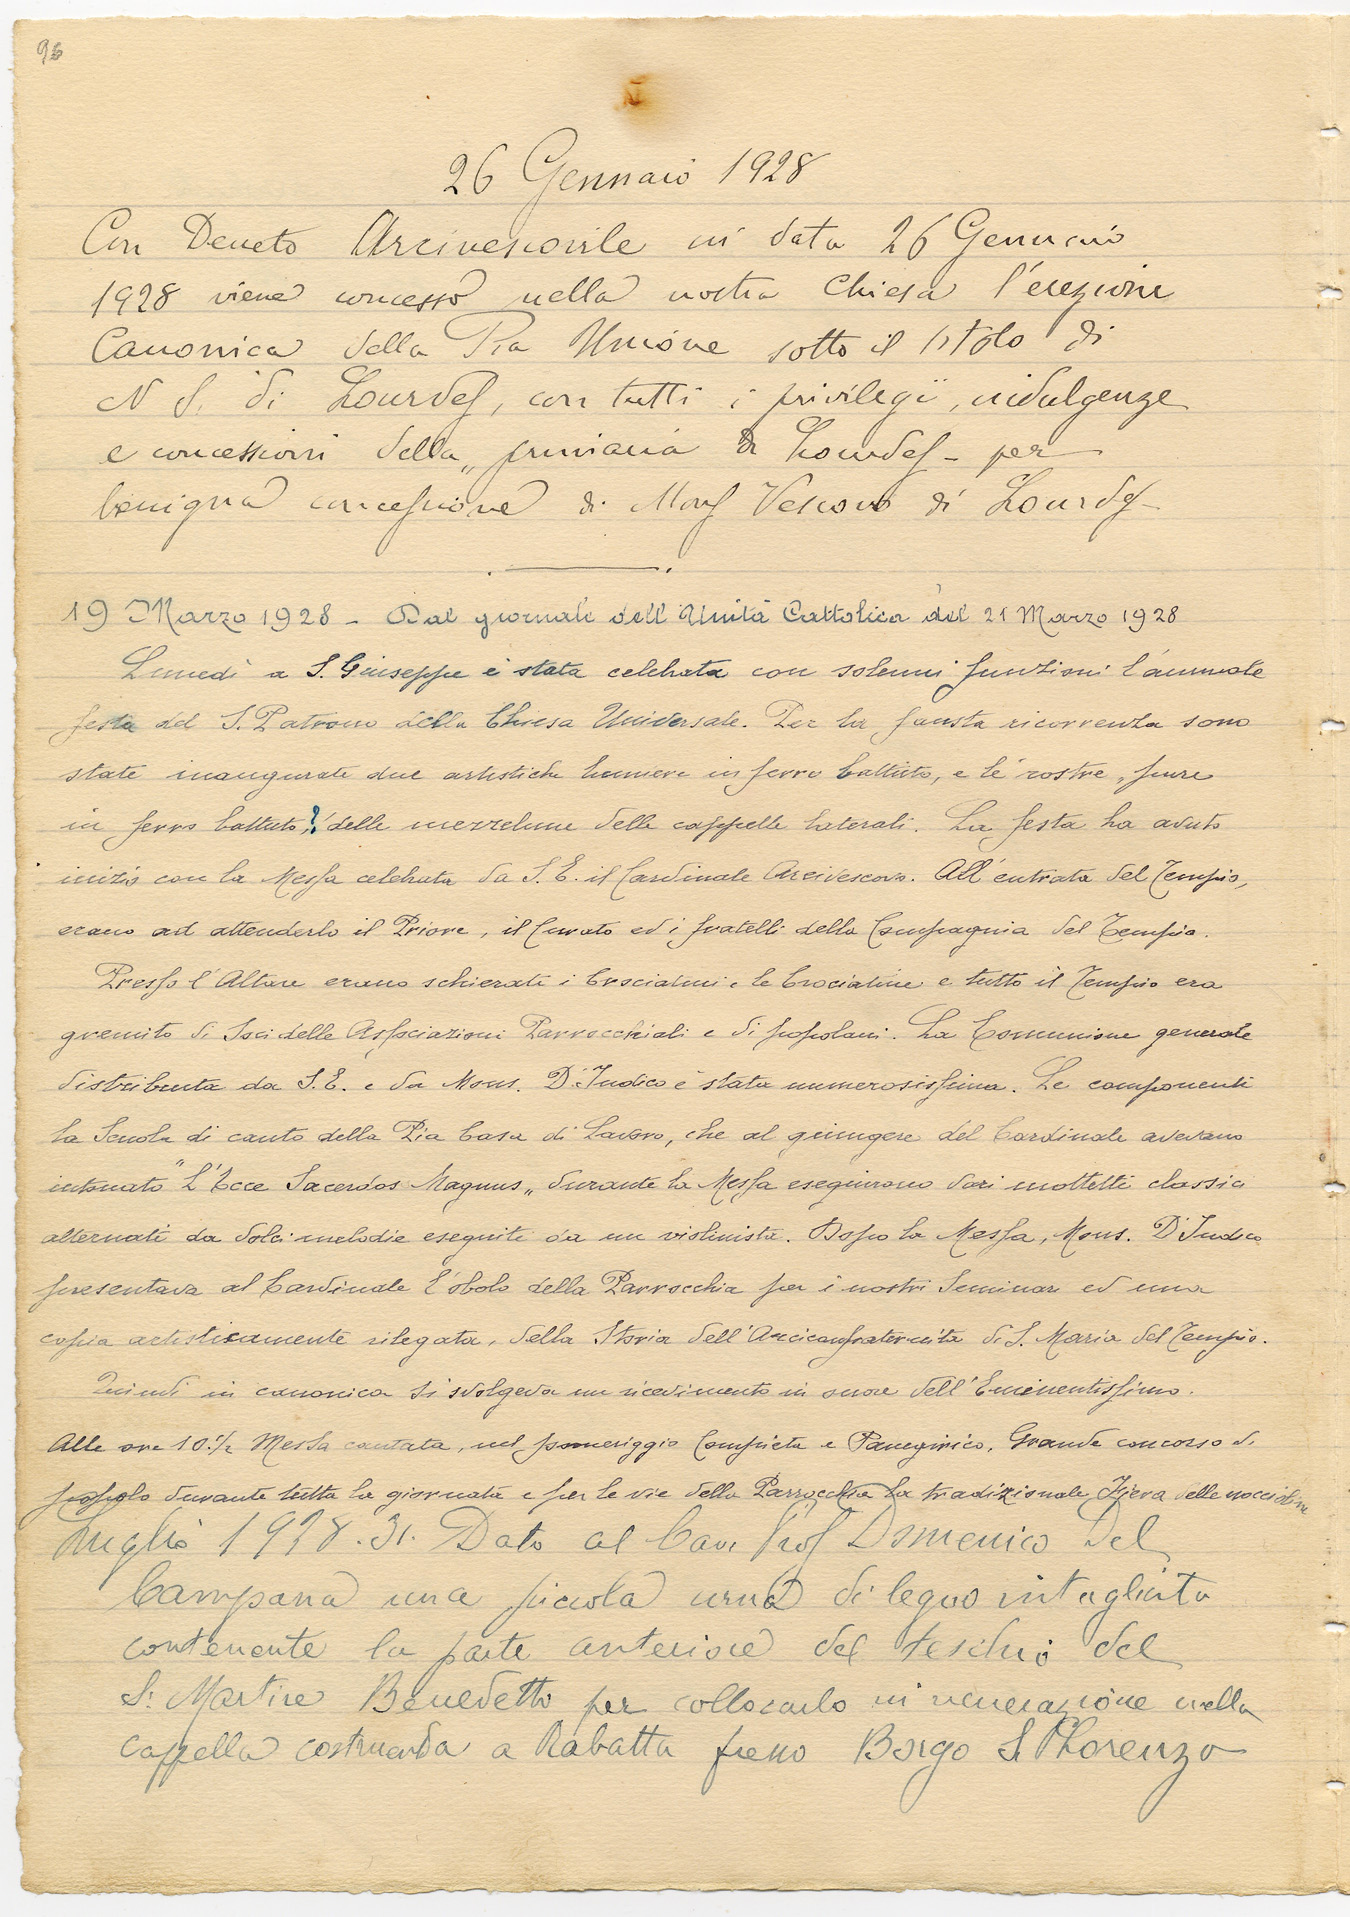 96
26 Gennaio 1928
Con Decreto Arcivescovile in data 26 Gennaio
1928 viene concesso nella nostra Chiesa l'erezione
Canonica della Pia Unione sotto il titolo di
N S. di Lourdes, con tutti i privilegi, indulgenze
e concessioni della „ primaria di Lourdes - per
benigna concessione di Mons Vescovo di Lourdes -
19 Marzo 1928 - Dal giornale dell'Unità Cattolica del 21 Marzo 1928
Lunedì a S. Giuseppe è stata celebrata con solenni funzioni l'annuale
festa del S. Patrono della Chiesa Universale. Per la fausta ricorrenza sono
state inaugurate due artistiche lumiere in ferro battuto, e le rostre, pure
in ferro battuto, delle mezzelune delle cappelle laterali. La festa ha avuto
inizio con la Messa celebrata da S. E. il Cardinale Arcivescovo. All'entrata del Tempio,
erano ad attenderlo il Priore, il Curato ed i fratelli della Compagnia del Tempio.
Presso l'Altare erano schierati i Crociatini e le Crociatine e tutto il Tempio era
gremito di Soci delle Associazioni Parrocchiali e di popolani. La Comunione generale
distribuita da S. E. e da Mons. D'Indico è stata numerosissima. Le componenti
la Scuola di canto della Pia Casa di Lavoro, che al giungere del Cardinale avevano
intonato "L'Ecce Sacerdos Magnus„ durante la Messa eseguirono vari mottetti classici
alternati da dolci melodie eseguite da un violinista. Dopo la Messa, Mons. D'Indico
presentava al Cardinale l'obolo della Parrocchia per i nostri Seminari ed una
copia artisticamente rilegata, della Storia dell'Arciconfraternita di S. Maria del Tempio.
Quindi in canonica si svolgeva un ricevimento in onore dell'Eminentissimo.
Alle ore 10.½ Messa cantata, nel pomeriggio Compieta e Panegirico. Grande concorso di
popolo durante tutta la giornata e per le vie della Parrocchia la tradizionale Fiera delle noccioline
Luglio 1928. 31. Dato al Cav. Prof Domenico Del
Campana una piccola urna di legno intagliato
contenente la parte anteriore del teschio del
S. Martire Benedetto per collocarlo in venerazione nella
cappella costruenda a Rabatta presso Borgo S. Lorenzo